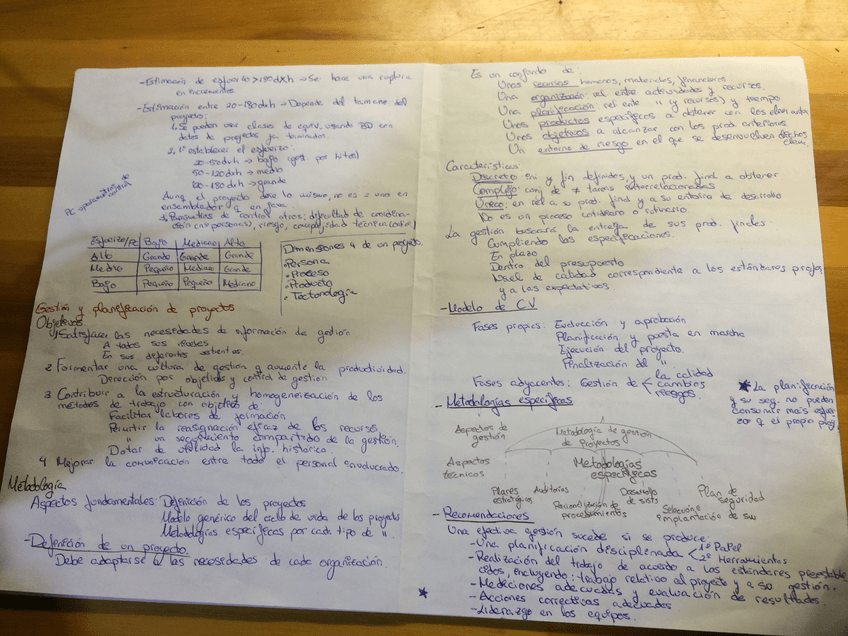 -Estimación de esfuerzo >180dxh → Se hace una ruptura
en
-Estimación entre 20-180dxh → Depende del tamaño del
proyecto:
1. Se pueden usar clases de equiv. usando BD con
datos de proyects ya terminados.
2. 1º establecer el esfuerzo:
20-50dxh → bajo (gest. por hitos)
50-120dxh → medio
120-180dxh → grande
Aunq el proyecto sea lo mismo, no es = uno en
ensamblador q en java.
3. Preguntas de control otros: dificultad de
(nº personas), riesgo, complejidad técnica
PC →
control
Esfuerzo/PC Bajo Mediano Alto
Alto Grande Grande Grande
Medio Pequeño Mediano Grande
Bajo Pequeño Pequeño Mediano
Dimensiones 4 de un proyecto.
·Persona
·Proceso
·Producto
·Tectonología
Gestión y planificación de proyectos
Objetivos
1. Satisfacer las necesidades de información de gestión
A todos sus niveles
En sus diferentes
2. Fomentar una cultura de gestión q aumente la productividad.
Dirección por objetivos y control de gestión
3. Contribuir a la estructuración y homogeneización de los
métodos de trabajo con objetivos de
Facilitar labores de formación
Permitir la reasignación eficaz de los recursos
" un seguimiento compartido de la gestión.
Dotar de utilidad la info. histórica.
4. Mejorar la comunicación entre todo el personal involucrado.
Metodología
Aspectos fundamentales: Definición de los proyectos
Modelo genérico del ciclo de vida de los proyectos
Metodologías específicas por cada tipo de "
-Definición de un proyecto
Debe adaptarse a las necesidades de cada organización.
Es un conjunto de:
Unos recursos humanos, materiales, financieros
Una organización: rel entre actividades y recursos.
Una planificación rel entre " (y recursos) y tiempo
Unos productos específicos a obtener con los
Unos objetivos a alcanzar con los prod. anteriores
Un entorno de riesgo en el que se desenvuelven dichos
Características:
Discreto: ini y fin definidos, y un prod. final a obtener
Complejo: conj de ≠ tareas interrelacionadas
Único: en rel a su prod. final y a su entorno de desarrollo
No es un proceso cotidiano o rutinario
La gestión buscará la entrega de sus prod. finales
Cumpliendo las especificaciones.
En plazo
Dentro del presupuesto
Nivel de calidad correspondiente a los estándares
y a las expectativas.
-Modelo de CV
Fases propias: Evaluación y aprobación
Planificación y puesta en marcha
Ejecución del proyecto
Finalización del "
Fases adyacentes: Gestión de la calidad
cambios
riesgos.
★ La planificación
y su seg. no pueden
consumir más esfuer
zo q el propio proy.
- Metodologías específicas
Aspectos de
gestión
Metodología de gestión
de Proyectos
Aspectos
técnicos
Metodologías
específicas
Planes
estratégic
Auditorías
Racionalización de
procedimientos
Desarrollo
de sists
Selección e
implantación de sw
Plan de
seguridad
- Recomendaciones
Una efectiva gestión sucede si se produce:
-Una planificación disciplinada 1º Papel
2º Herramientas
-Realización del trabajo de acuerdo a los estándares preestable
cidos, incluyendo: trabajo relativo al proyecto y a su gestión.
-Mediciones adecuadas y evaluación de resultados.
-Acciones correctivas adecuadas
-Liderazgo en los equipos.
★